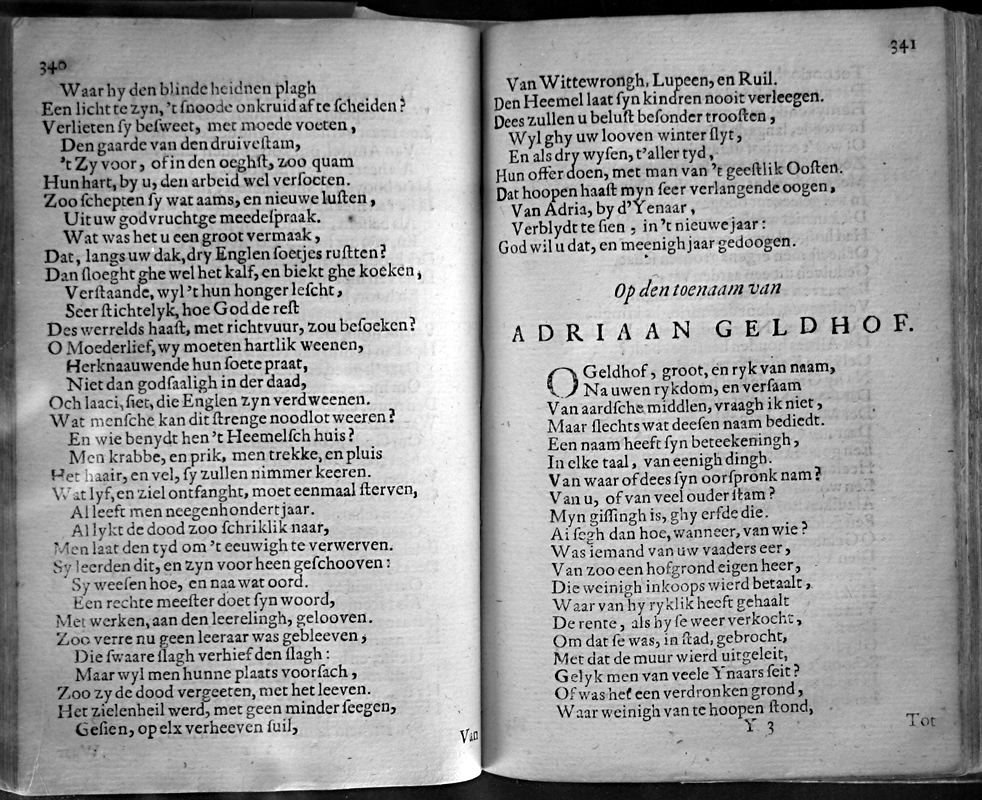 340
Waar hy den blinde heidnen plagh
Een licht te zyn, 't ſnoode onkruid af te ſcheiden?
Verlieten ſy beſweet, met moede voeten,
Den gaarde van den druiveſtam,
't Zy voor, of in den oeghſt, zoo quam
Hun hart, by u, den arbeid wel verſoeten.
Zoo ſchepten ſy wat aams, en nieuwe luſten,
Uit uw godvruchtge meedeſpraak.
Wat was het u een groot vermaak,
Dat, langs uw dak, dry Englen ſoetjes ruſtten?
Dan ſloeght ghe wel het kalf, en biekt ghe koeken,
Verſtaande, wyl 't hun honger leſcht,
Seer ſtichtelyk, hoe God de reſt
Des werrelds haaſt, met richtvuur, zou beſoeken?
O Moederlief, wy moeten hartlik weenen,
Herknaauwende hun ſoete praat,
Niet dan godſaaligh in der daad,
Och laaci, ſiet, die Englen zyn verdweenen.
Wat menſche kan dit ſtrenge noodlot weeren?
En wie benydt hen 't Heemelſch huis?
Men krabbe, en prik, men trekke, en pluis
Het haair, en vel, ſy zullen nimmer keeren.
Wat lyf, en ziel ontfanght, moet eenmaal ſterven,
Al leeft men neegenhondert jaar.
Al lykt de dood zoo ſchriklik naar,
Men laat den tyd om 't eeuwigh te verwerven.
Sy leerden dit, en zyn voor heen geſchooven:
Sy weeſen hoe, en naa wat oord.
Een rechte meeſter doet ſyn woord,
Met werken, aan den leerelingh, gelooven.
Zoo verre nu geen leeraar was gebleeven,
Die ſwaare ſlagh verhief den ſlagh:
Maar wyl men hunne plaats voorſach,
Zoo zy de dood vergeeten, met het leeven.
Het zielenheil werd, met geen minder ſeegen,
Geſien, op elx verheeven ſuil,
Van
341
Van Wittewrongh, Lupeen, en Ruil.
Den Heemel laat ſyn kindren nooit verleegen.
Dees zullen u beluſt beſonder trooſten,
Wyl ghy uw looven winter ſlyt,
En als dry wyſen, t'aller tyd,
Hun offer doen, met man van 't geeſtlik Ooſten.
Dat hoopen haaſt myn ſeer verlangende oogen,
Van Adria, by d'Yenaar,
Verblydt te ſien, in 't nieuwe jaar:
God wil u dat, en meenigh jaar gedoogen.
Op den toenaam van
ADRIAAN GELDHOF.
O Geldhof, groot, en ryk van naam,
Na uwen rykdom, en verſaam
Van aardſche middlen, vraagh ik niet,
Maar ſlechts wat deeſen naam bediedt.
Een naam heeft ſyn beteekeningh,
In elke taal, van eenigh dingh.
Van waar of dees ſyn oorſpronk nam?
Van u, of van veel ouder ſtam?
Myn giſſingh is, ghy erfde die.
Ai ſegh dan hoe, wanneer, van wie?
Was iemand van uw vaaders eer,
Van zoo een hofgrond eigen heer,
Die weinigh inkoops wierd betaalt,
Waar van hy ryklik heeft gehaalt
De rente, als hy ſe weer verkocht,
Om dat ſe was, in ſtad, gebrocht,
Met dat de muur wierd uitgeleit,
Gelyk men van veele Ynaars ſeit?
Of was het een verdronken grond,
Waar weinigh van te hoopen ſtond,
Y 3
Tot